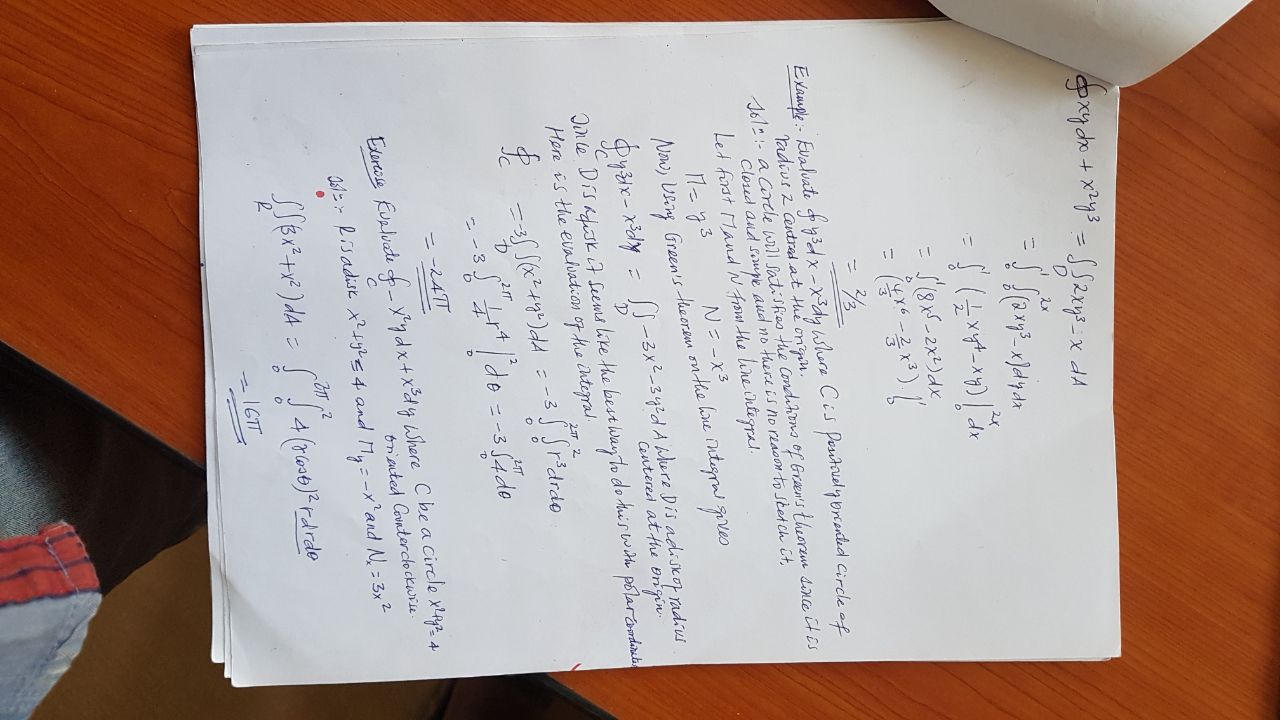 ∮xydx + x²y³ = ∬_D 2xy³ - x dA
= ∫₀¹∫₀²ˣ (2xy³ - x)dydx
= ∫₀¹ (½xy⁴ - xy)|₀²ˣ dx
= ∫₀¹ (8x⁵ - 2x²)dx
= (4/3 x⁶ - 2/3 x³)|₀¹
= 2/3
Example:- Evaluate ∮y³dx - x³dy where C is positively oriented circle of
radius 2 centred at the origin.
Solⁿ:- a circle will satisfies the conditions of Green's theorem since it is
closed and simple and so there is no reason to sketch it.
Let first M and N from the line integral.
M = y³ N = -x³
Now, Using Green's theorem on the line integral gives
∮_C y³dx - x³dy = ∬_D -3x² - 3y² dA where D is a disk of radius
centered at the origin.
Since D is a disk it seems like the best way to do this with polar coordinates
Here is the evaluation of the integral.
∮_C = -3∬_D (x² + y²)dA = -3∫₀^2π∫₀² r³drdθ
= -3∫₀^2π ¼r⁴|₀² dθ = -3∫₀^2π 4dθ
= -24π
Exercise Evaluate ∮_C -x²y dx + x³dy where C be a circle x²+y²=4
oriented Counterclockwise.
Solⁿ:- R is a disk x²+y² ≤ 4 and My = -x² and Nx = 3x²
∬_R (3x² + x²)dA = ∫₀^2π∫₀² 4(rcosθ)² rdrdθ
= 16π